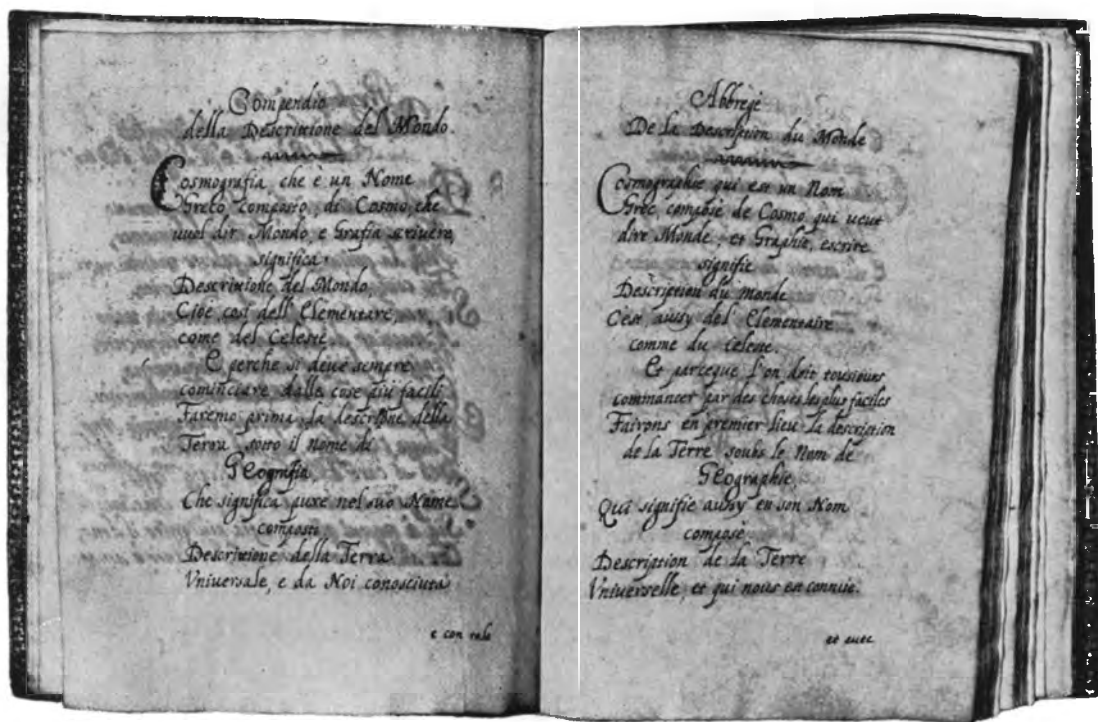 Compendio
della Descrittione del Mondo.
Cosmografia che e un Nome
Greco composto, di Cosmo, che
uuol dir Mondo, e Grafia scriuere,
significa
Descrittione del Mondo,
Cioe cosi dell Elementare,
come del Celeste.
E perche si deue sempre
cominciare dalle cose piu facili
Faremo prima la descritione della
Terra sotto il Nome di
Geografia
Che significa pure nel suo Nome
composto
Descrittione della Terra
Vniuersale, e da Noi conosciuta
e con
Abbregé
De la Description du Monde
Cosmographie qui est un Nom
Grec, composé de Cosmo, qui ueut
dire Monde, et Graphie, escrire
signifie
Description du monde
C'est aussy del Elementaire
comme du Celeste.
Et parceque l'on doit tousiours
commancer par des choses les plus faciles
Fairons en premier lieu la description
de la Terre soubs le Nom de
Geographie,
Qui signifie aussy en son Nom
composé,
Description de la Terre
Vniuerselle, et qui nous est connüe.
et auec